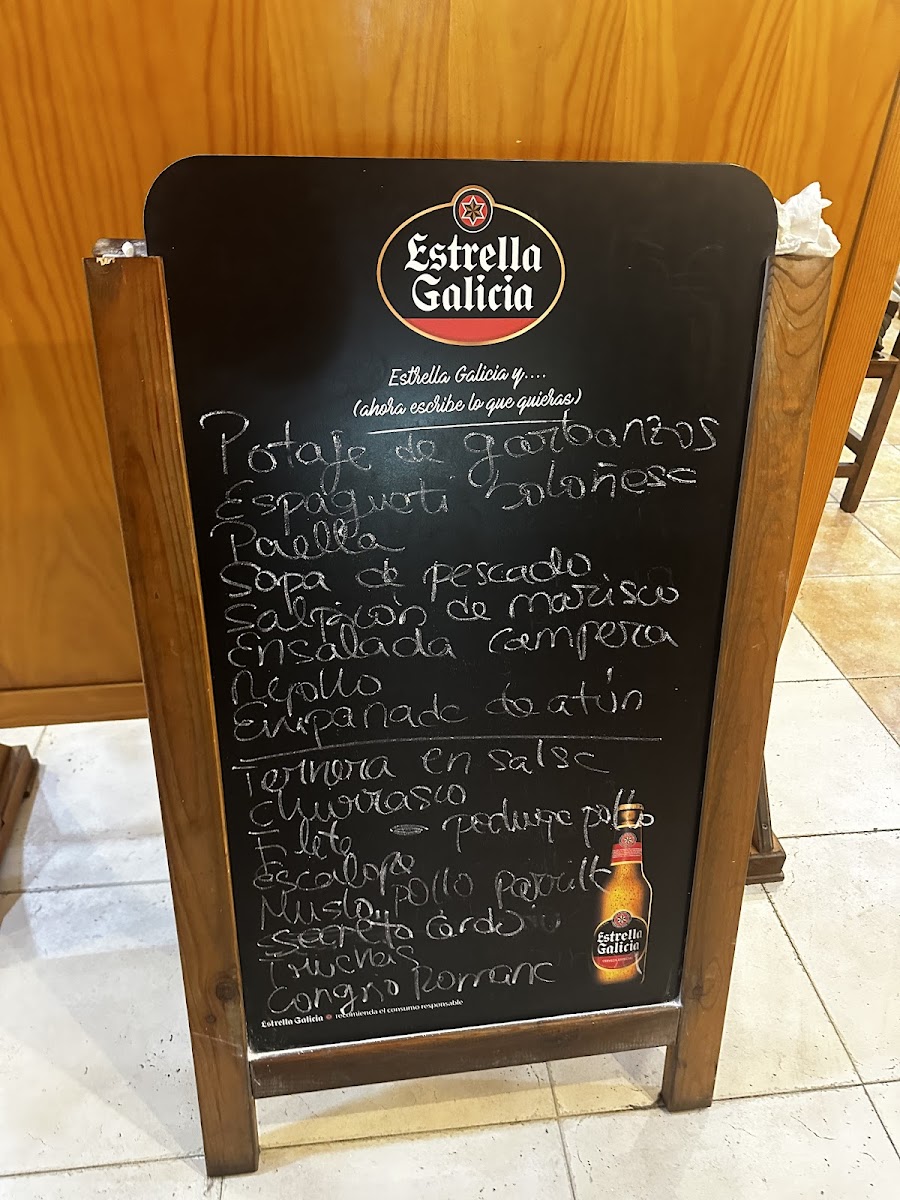 Estrella
Galicia
Estrella Galicia y....
(ahora escribe lo que quieras)
Potaje de garbanzos
Espagueti boloñesa
Paella
Sopa de pescado
Salpicón de marisco
Ensalada campera
Repollo
Empanada de atún
Ternera en salsa
Churrasco
Filete - pechuga pollo
Escalope
Muslo pollo parrilla
Secreto cerdo
Truchas
Congrio Romana
Estrella
Galicia
Estrella Galicia recomienda el consumo responsable